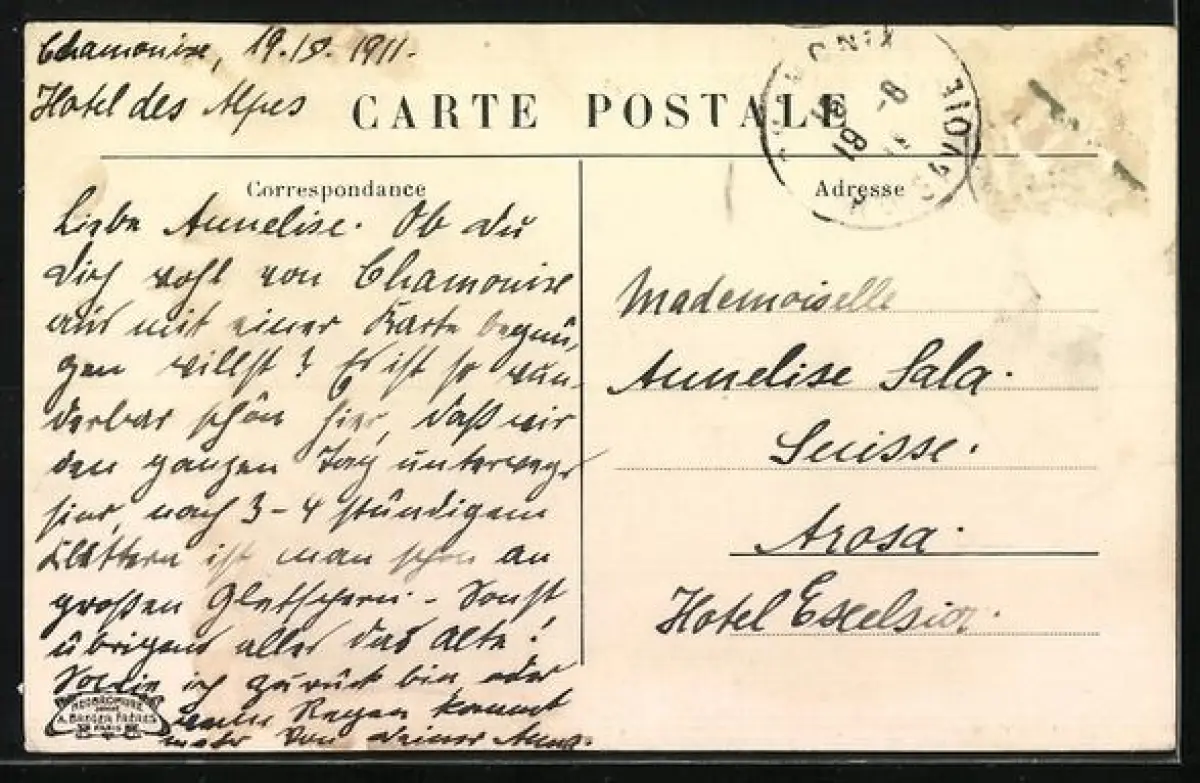 Chamonix, 19.IX.1911.
Hotel des Alpes
CARTE POSTALE
CHAMONIX
SAVOIE
19
Correspondance
Adresse
Liebe Annelise. Ob du
dich wohl von Chamonix
aus mit einer Karte begnü-
gen willst? Es ist so wun-
derbar schön hier, daß wir
den ganzen Tag unterwegs
sind, nach 3-4 stündigem
Klettern ist man schon an
großen Gletschern. - Sonst
übrigens alles das alte!
ich zurück bin oder
Regen kommt
mehr von deiner
Mademoiselle
Annelise Sala.
Suisse.
Arosa.
Hotel Excelsior.
A. BREGER FRÈRES
PARIS